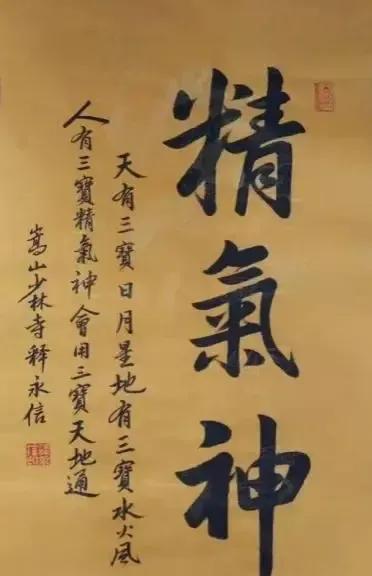 精氣神
天有三寶日月星地有三寶水火風
人有三寶精氣神會用三寶天地通
嵩山少林寺释永信